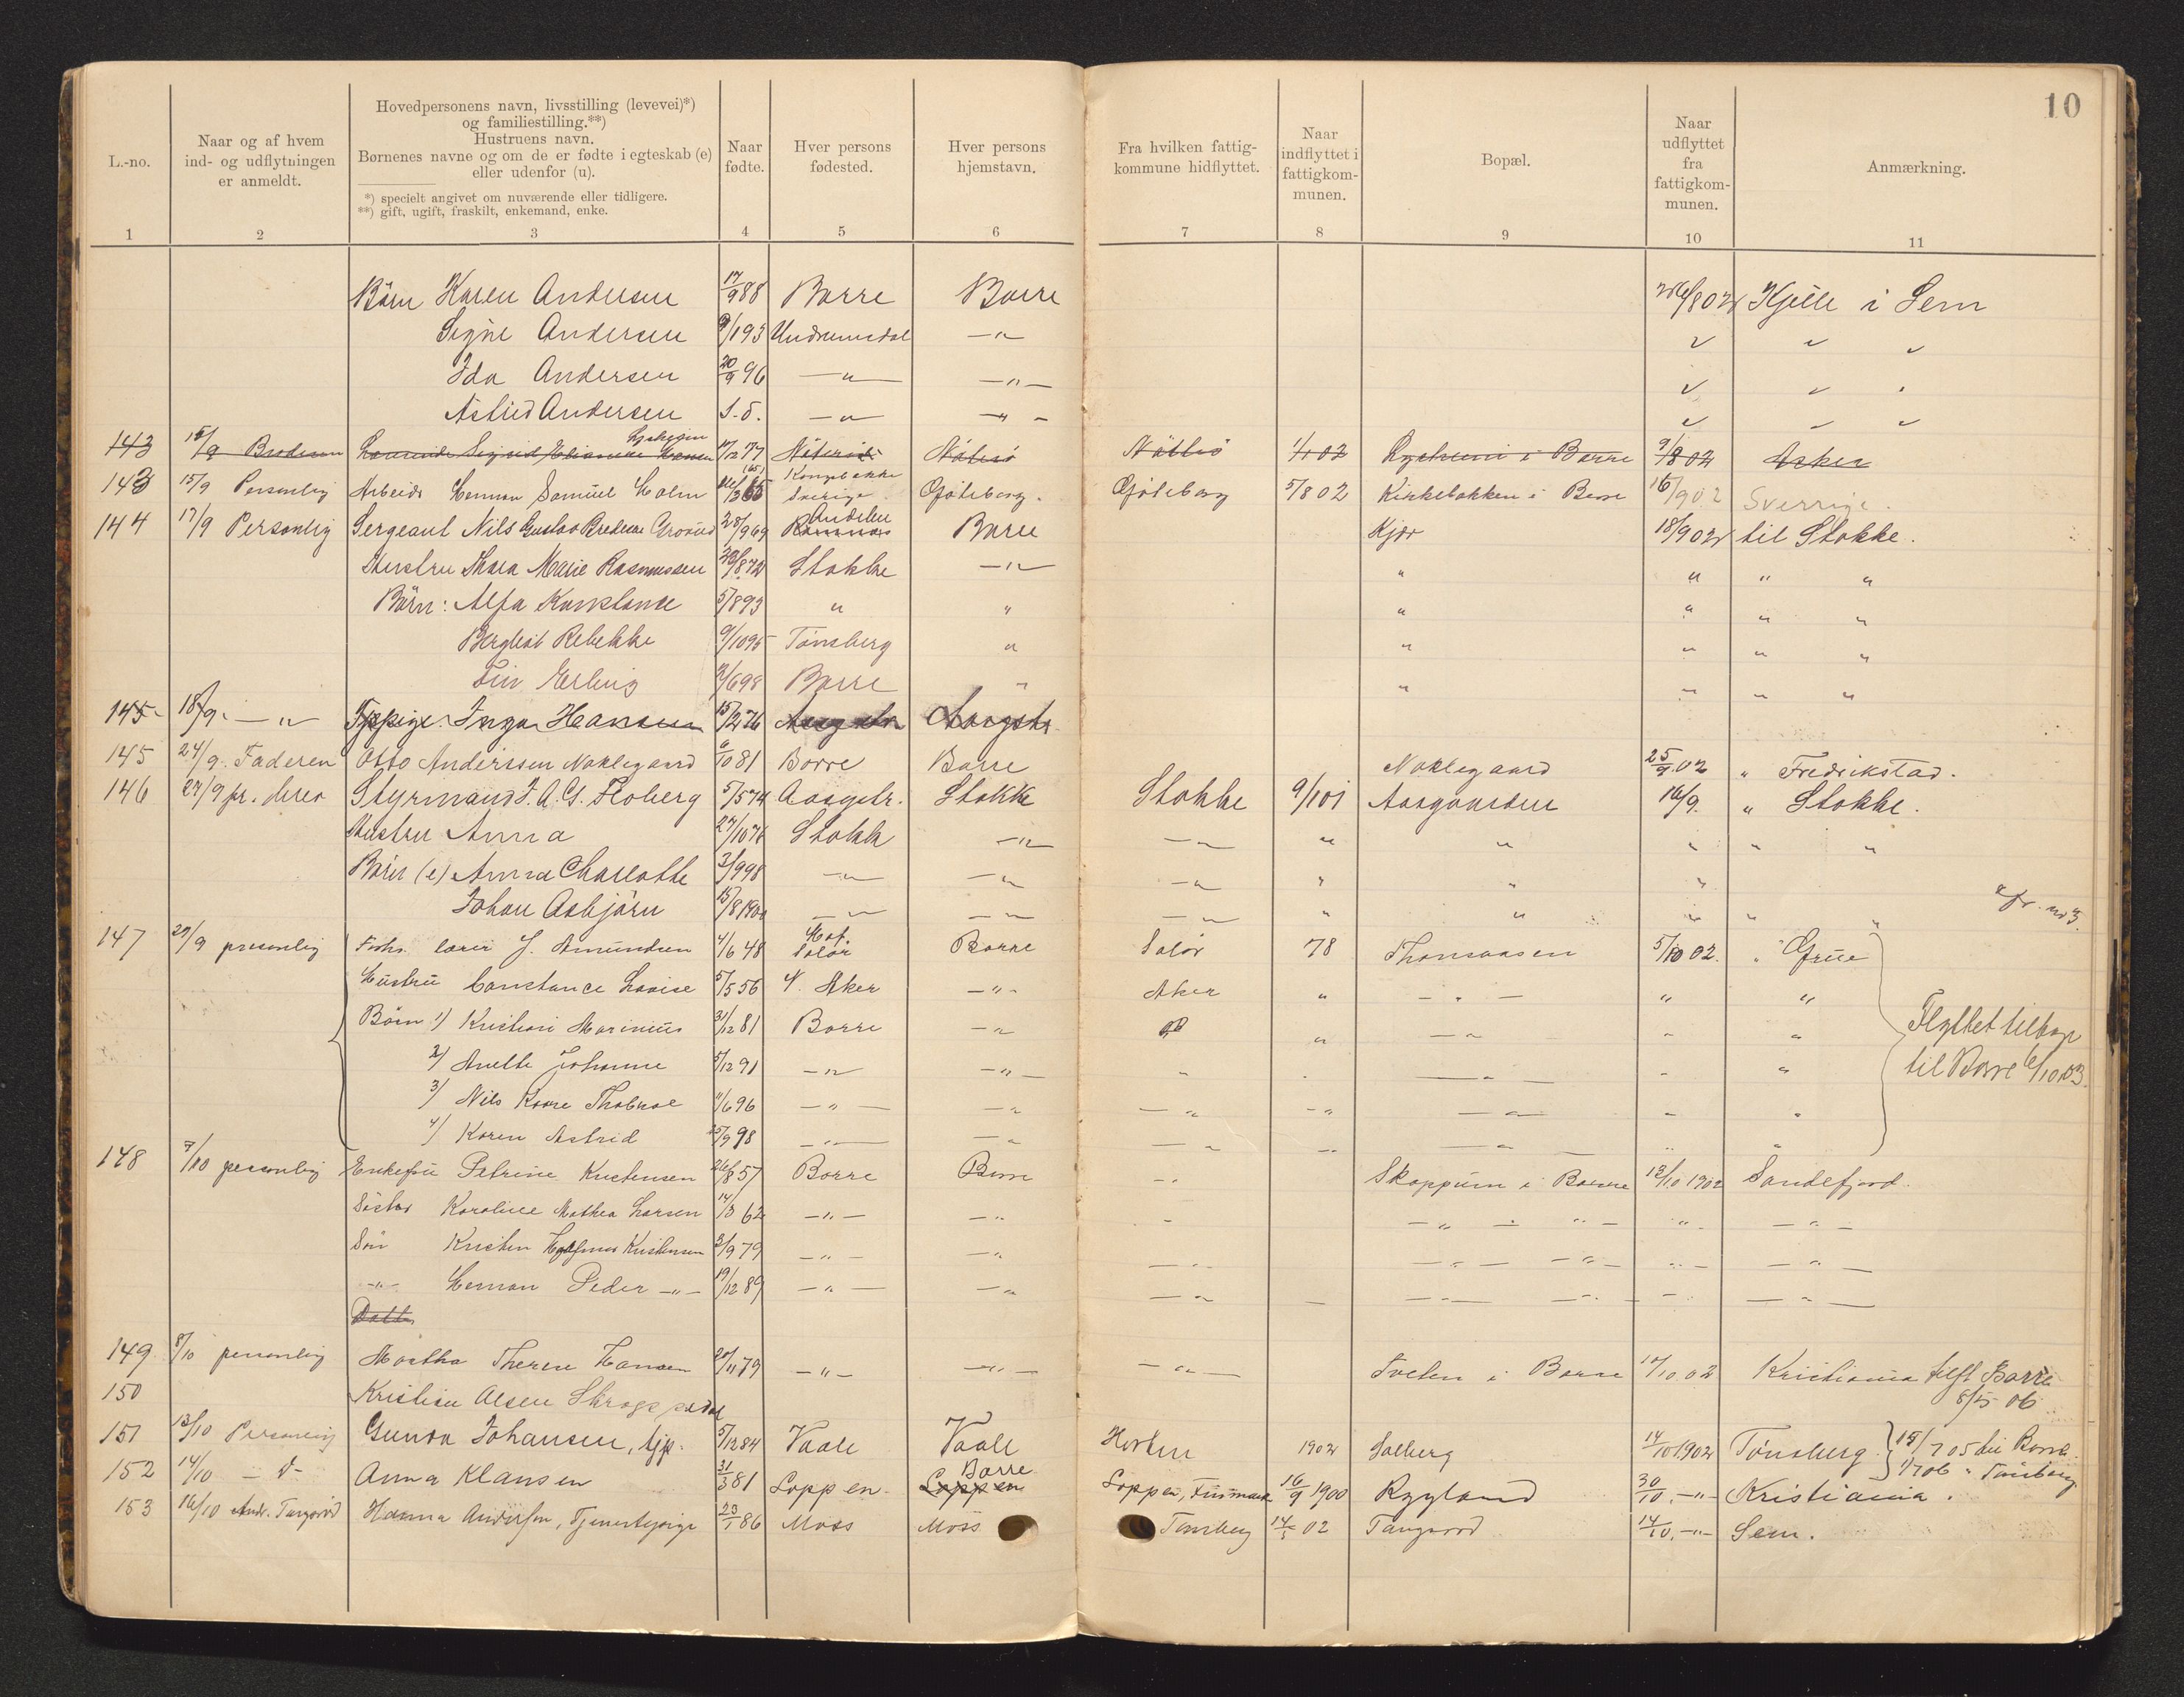 10
L.-no.
Naar og af hvem ind- og udflytningen er anmeldt.
Hovedpersonens navn, livsstilling (levevei)*) og familiestilling.**)
Hustruens navn.
Børnenes navne og om de er fødte i egteskab (e) eller udenfor (u).
*) specielt angivet om nuværende eller tidligere.
**) gift, ugift, fraskilt, enkemand, enke.
Naar fødte.
Hver persons fødested.
Hver persons hjemstavn.
Fra hvilken fattigkommune hidflyttet.
Naar indflyttet i fattigkommunen.
Bopæl.
Naar udflyttet fra fattigkommunen.
Anmærkning.
1 2 3 4 5 6 7 8 9 10 11
Börn Karen Andersen 17/9 88 Borre Borre 26/8 02 Kjelle i Sem
Signe Andersen 9/1 93 Undrumsdal —"—
Ida Andersen 20/9 96 —"— —"—
Astrid Andersen —"— —"—
143 15/9 Broderen Hansen 77 Nöterö Nöterö Nötterö 02 i Borre 9/8 02 Asker
143 15/9 Personlig Arbeidr Herman Samuel Holm 65 Kongsbakke Sverige Göteborg. Göteborg 5/8 02 Kirkebakken i Borre 16/9 02 Sverrige.
144 17/9 Personlig Sergeant Nils Gustav 28/9 69 Andebu Borre Kjær 18/9 02 til Stokke.
Hustru Thora Marie Rasmussen 72 Stokke —"— " " " "
Börn: Alfa Konstance 5/8 93 " " " " " "
Bergliot Rebekke 9/10 95 Tönsberg " " " " "
Fin Erling 2/6 98 Borre " " " " "
145 18/9. —"— Tjpige. Inga Hansen 15/2 76 Aasgstr. Aasgstr.
145 24/9. Faderen Otto Anderssen Noklegaard 6/10 81 Borre Borre Noklegaard 25/9 02 " Fredrikstad.
146 27/9 pr. brev Styrmand J. A. G. Floberg 5/5 74 Aasgstr. Stokke Stokke 9/1 01 Aasgaarden 16/9. " Stokke.
Hustru Anna 27/10 76 Stokk —"— —"— " " " " "
Börn (e) Anna Charlotte 3/9 98 —"— —"— —"— " " "
Johan Asbjörn 15/8 1900 —"— —"— —"— " " " " "
147 29/9 personlig Forhv. lærer J. Amundsen 4/6 48 Hof Solör Borre Solör 78 Thorsaasen 5/10 02. " Grue
Hustru Constance Lovise 5/5 56 V. Aker —"— Aker " —"— " "
Börn 1) Kristian Marinius 31/12 81 Borre —"— " —"— " "
2) Anette Johanne 5/12 91 —"— —"— " —"— " "
Flyttet tilbage
til Borre 6/10 03.
3) Nils Kaare 11/6 96 —"— —"— —"— —"— —"— " "
4) Karen Astrid 25/9 98 —"— —"— —"— —"— "
148 7/10 personlig Enkefru Petrine Kristensen 26/8 57 Borre Borre —"— Skoppum i Borre 13/10 1902 Sandefjord.
Söster Karoline Mathea Larsen 14/3 62 —"— —"— —"— —"— —"—
Sön Kristen Hjalmar Kristensen 3/9 79 —"— —"— —"— —"— —"— —"—
—"— Herman Peder —"— 19/12 89 —"— —"— —"— —"— —"—
Datter
149 8/10 personlig Martha Therese Hansen 20/11 79 —"— —"— —"— Tveten i Borre 17/10 02 Kristiania tilft Borre
8/5 06
150 Kristian Olsen
151 13/10 Personlig Gunda Johansen, tjp. 5/12 84 Vaale Vaale Horten 1902 Solberg 14/10 1902 Tönsberg } 15/7 05 til Borre
1/7 06 " Tönsberg
152 14/10 —"— Anna Klausen 31/3 81 Loppen. Loppen Borre Loppen, Finmark 16/9 1900 Rygland 30/10. —"— Kristiania.
153 16/10 Andr. Tangsrød Hanna Andersen, Tjenestepige 23/1 86 Moss Moss Tønsberg 02 Tangsrød 14/10. —"— Sem.